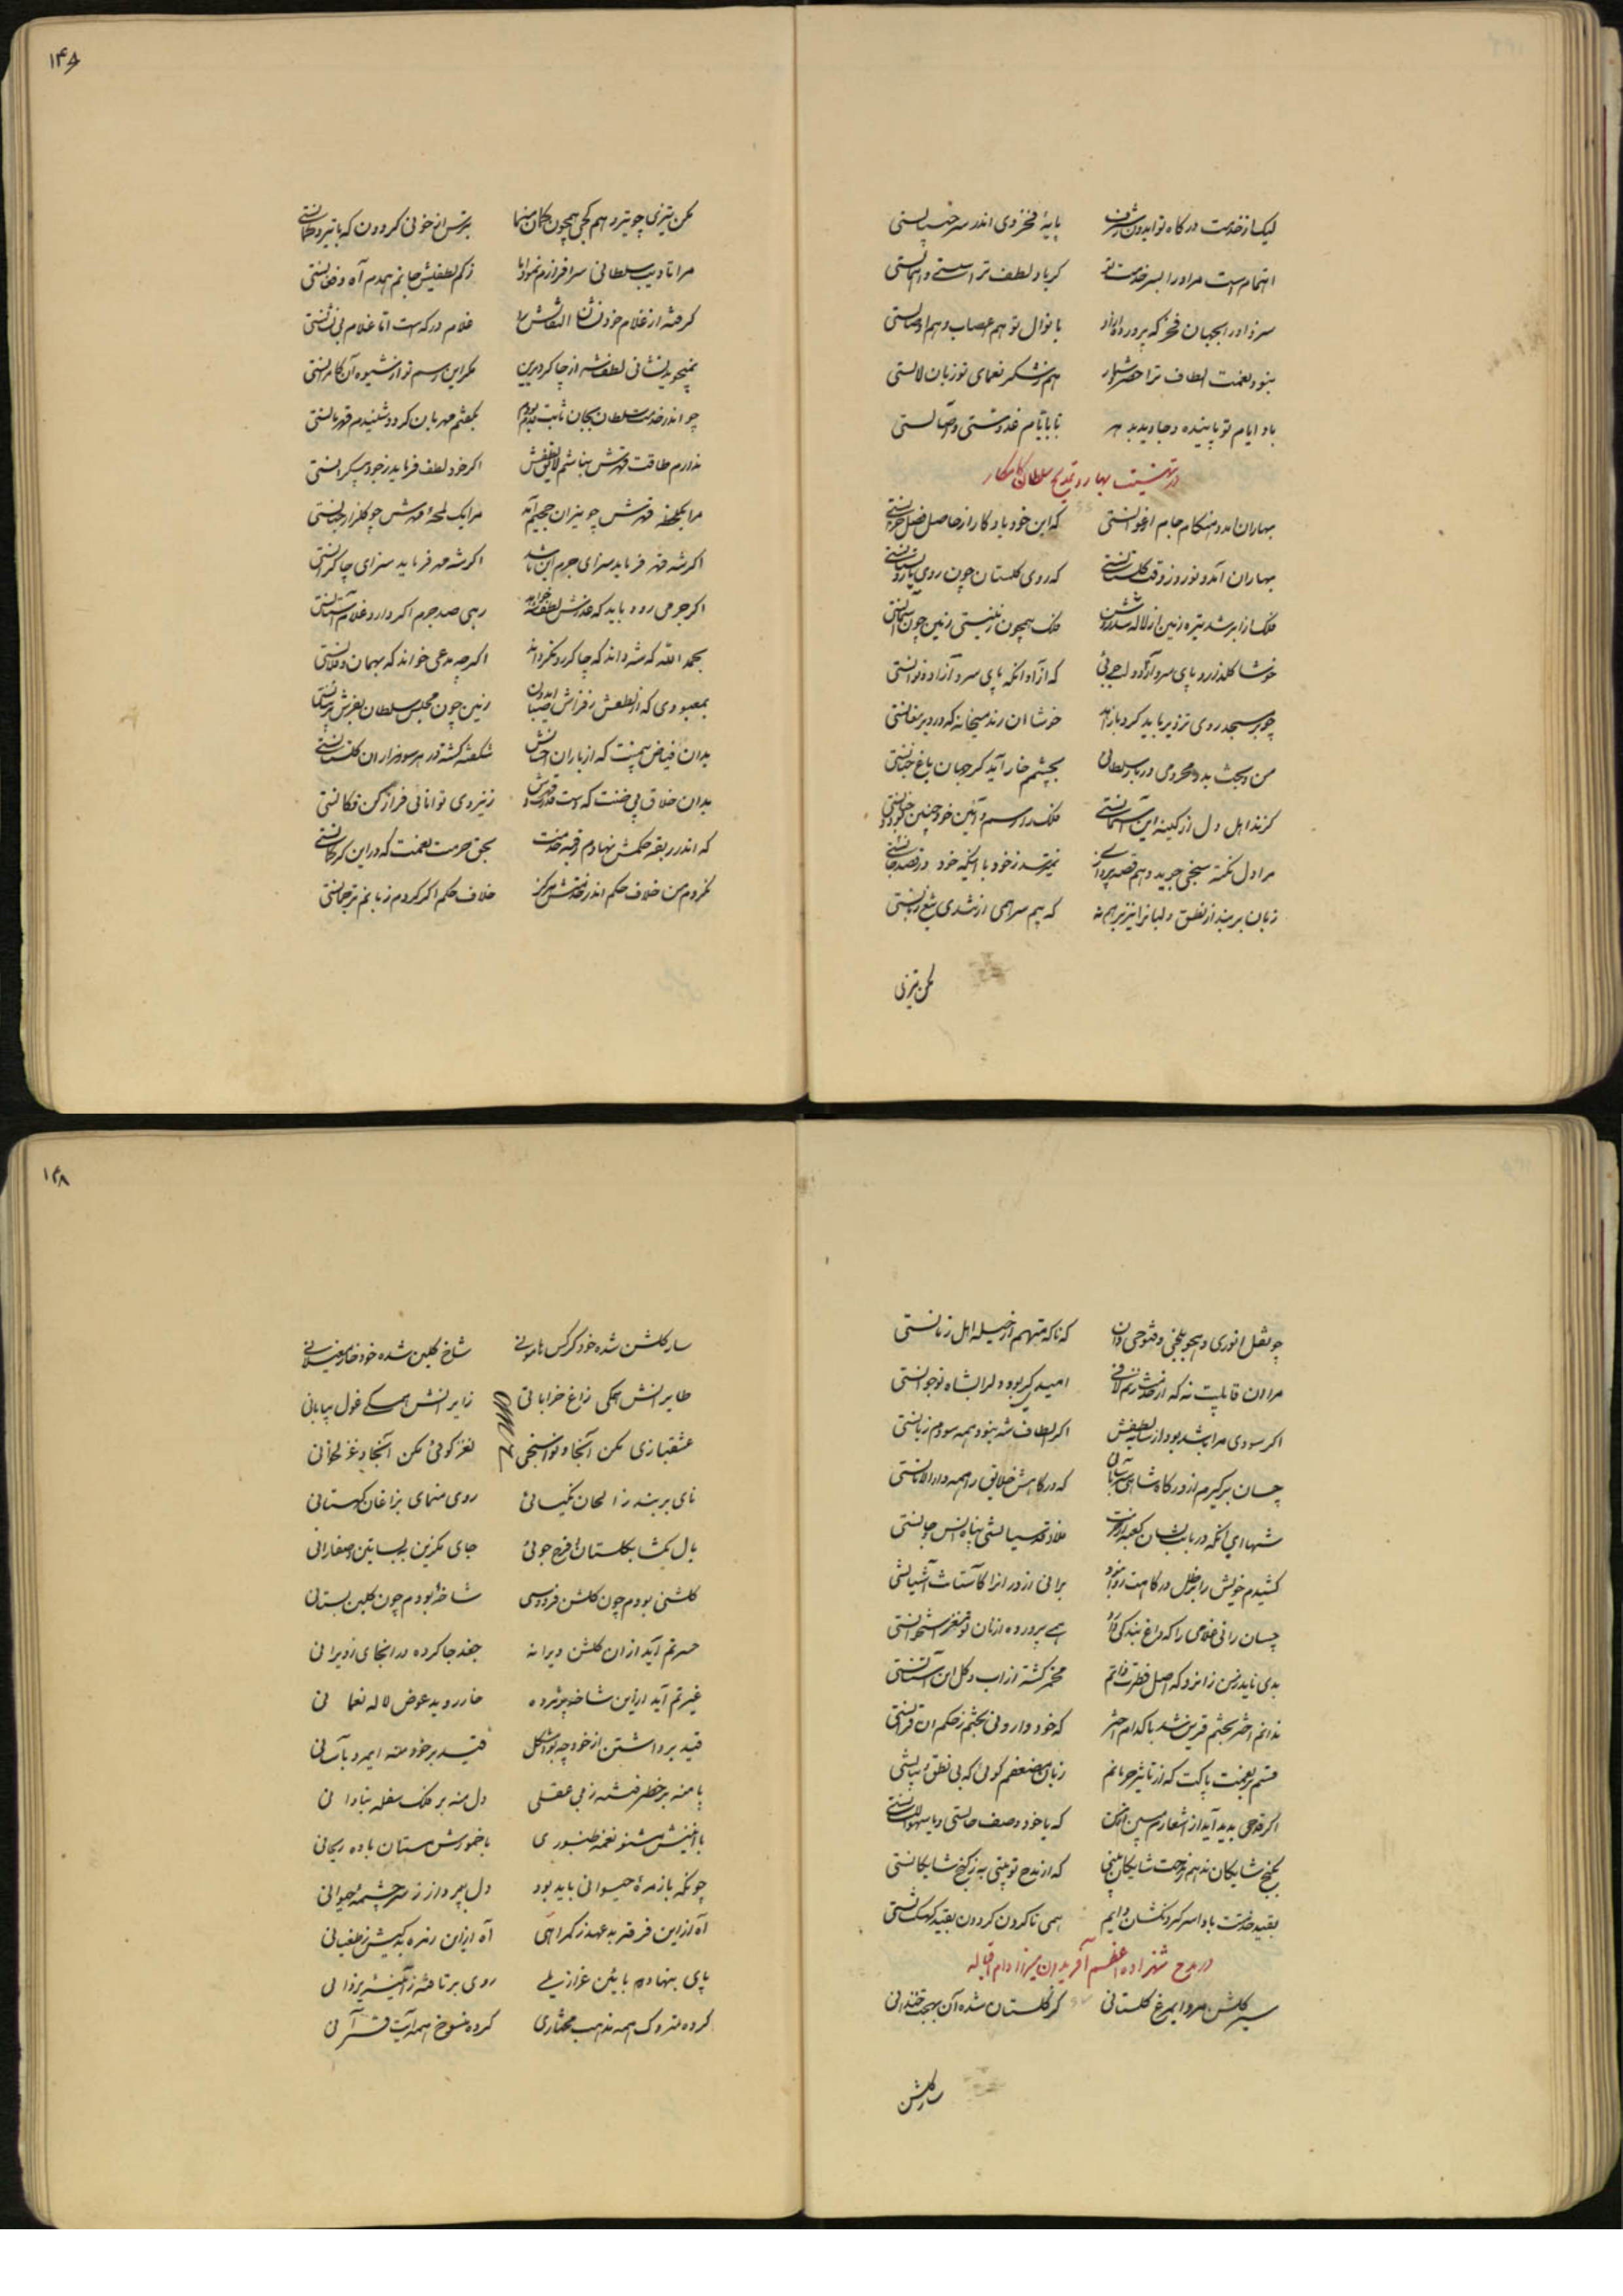 لیک از خدمت درکاه تو ایدون شرف پایهٔ فخر وی اندر سر
اهتمام است مر او را بسر خدمت تو کر باد لطف ترا
سزد او را بجهان فخر که پرورده با نوال تو هم
نبود نعمت الطاف ترا حصر شمار هم ز شکر نعمای تو زبان لالستی
باد ایام تو پاینده و جاوید بدهر تا بایام
در تهنیت بهار و تمدیح سلطان کامکار
بهاران آمد و هنکام جام ارغوانستی که این خود یادکار از حاصل فصل
بهاران آمد و نوروز و وقت کلستانستی که روی کلستان چون روی
فلک از ابر شد تیره زمین از لاله شد روشن فلک همچون زمینستی زمین چون آسمانستی
خوشا کلذر و پای سرو آزاد و لب جوئی که آزاد آنکه پای سرو آزاده
چو بر مسجد روی تزویر باید کرد خوشا آن رند میخانه که در دیر مغانستی
من و بخت بد و محرومی دربار سلطانی بچشمم خار آید کر جهان باغ جنانستی
کزند اهل دل از کینه این آسمانستی فلک را رسم و آئین خود چنین
مرا دل نکته سنجی جوید و هم قصه پردازی نترسد ز خود با اینکه خود در قصد جانستی
زبان بر بند از نطق و لبان را نیز بر هم نه که بیم سر همی از تندی تیغ زبانستی
مکن تیزی
۱۴۶
مکن تیزی چو تیر و هم کجی همچون کمان منما بترس از خوئی کردون که با تیر و کمانستی
مرا تادیب سلطانی سرافرازم نمود اما ز کم لطفیش جانم همدم آه و فغانستی
کرفته از غلام خود نشان التفاتش را غلام درکه است اما غلام بی نشانستی
نمیجوید نشانی لطف شه از چاکر دیرین مکر این رسم نو از شیوه آن کامرانستی
چو اندر خدمت سلطان بجان ثابت قدم بودم بکفتم مهربان کردد شنیدم قهرمانستی
ندارم طاقت قهرش نباشم لایق لطفش اکر خود لطف فرماید ز جود بیکرانستی
مرا یکلحظه قهرش چو نیران جحیم آمد مرا یک لمحه مهرش چو کلزار جنانستی
اکر شه قهر فرماید سزای جرم این باشد اکر شه مهر فرماید سزای چاکرانستی
اکر جرمی رود باید که عذرش لطف شه خواهد رهی صد جرم اکر دارد غلام آستانستی
بحمد الله که شه داند که چاکر رو نکرداند اکر چه مدعی خواند که بهمان و فلانستی
بمعبودی که از لطفش ز فراش صبا ایدون زمین چون مجلس سلطان بفرش پرنیانستی
بدان فیاض بیمنت که از باران احسانش شکفته کشته در هر سو هزاران کلستانستی
بدان خلاق بی ضنت که هست از قدرت قدرش ز نیروی توانائی فراز کن فکانستی
که اندر ربقه حکمش نهادم رقبه خدمت بحق حرمت نعمت که در این
نکردم من خلاف حکم اندر خدمتش هرکز خلاف حکم اکر کردم زبانم ترجمانستی
چو نقل انوری و هجو بلخی و فتوحی دان که ناکه متهم از حیله اهل زمانستی
مرا آن قابلیت نه که از خدمت زنم لافی امید پیر بود و لر ابشاه نوجوانستی
اکر سودی مرا باشد بود از سایه لطفش اکر الطاف شه نبود همه سودم زیانستی
چسان برکیرم از درکاه شاهی که درکاهش خلایق را همه دارالامانستی
شها ای آنکه دربابت بسان کعبه ملاذ قدسیانستی پناه انس و جانستی
کشیدم خویش را بر ظل درکاهت روا نبود برانی از در آنرا کآستانت آشیانستی
چسان رانی غلامی را که داغ بندکی دارد همی پرورده از نان تو مغز استخوانستی
بدی ناید ز من زانرو که اصل فطرت ذاتم مخمر کشته از آب و کل این آستانستی
ندانم اختر بختم قرین شد با کدام اختر که خود وارونی بختم ز حکم آن قرانستی
قسم بر نعمت پاکت که از تاثیر حرمانم زبان کوئی که بی نطق و بیانستی
اکر قدحی پدید آید از اشعارم مبین آنرا که با خود وصف حالستی
بکنج شایکان ندهم که از مدح تو بیتی به ز کنج شایکانستی
بقید خدمتت بادا سر کردنکشان دایم همی تا کردن کردون بقید کهکشانستی
در مدح شهزاده اعظم آفریدون میرزا دام اقباله
سیر کلشن مرو ایمرغ کلستانی کز کلستان شده آن بهجت خندانی
سار کلشن
۱۴۸
سار کلشن شده خود کرکس هامونی شاخ کلبن شده خود خار مغیلانی
طایرانش همکی زاغ خراباتی زایرانش همکی غول بیابانی
عشقبازی مکن آنجا و نواسنجی نغز کوئی مکن آنجا و غزلخوانی
نای بربند ز الحان نکیسائی روی منمای بزاغان کهستانی
بال بکشا بکلستان فرح جوئی جای بکزین به بساتین
کلشنی بودم چون کلشن فردوسی شاخهٔ بودم چون کلبن بستانی
حسرتم آید از ان کلشن ویرانه جغد جا کرده در آنجای ز ویرانی
غیرتم آید از این شاخ پژمرده خار روید عوض لاله نعمانی
قید برداشتن از خود چه بود مشکل قید بر خود منه ایمرد بآسانی
پا منه بر خطر فتنه ز بی عقلی دل منه بر فلک سفله بنادانی
با انینش مشنو نغمه طنبوری با خمورش مستان باده ریحانی
چونکه با زمرهٔ حیوانی باید بود دل بپرداز ز سرچشمهٔ حیوانی
آه از این فرقه بد عهد ز کمراهی آه از ان زمره بد کیش ز طغیانی
پای بنهاده بآئین عزازیلی روی برتافته ز آئینه یزدانی
کرده متروک همه مذهب مختاری کرده منسوخ همه آیت قرآنی